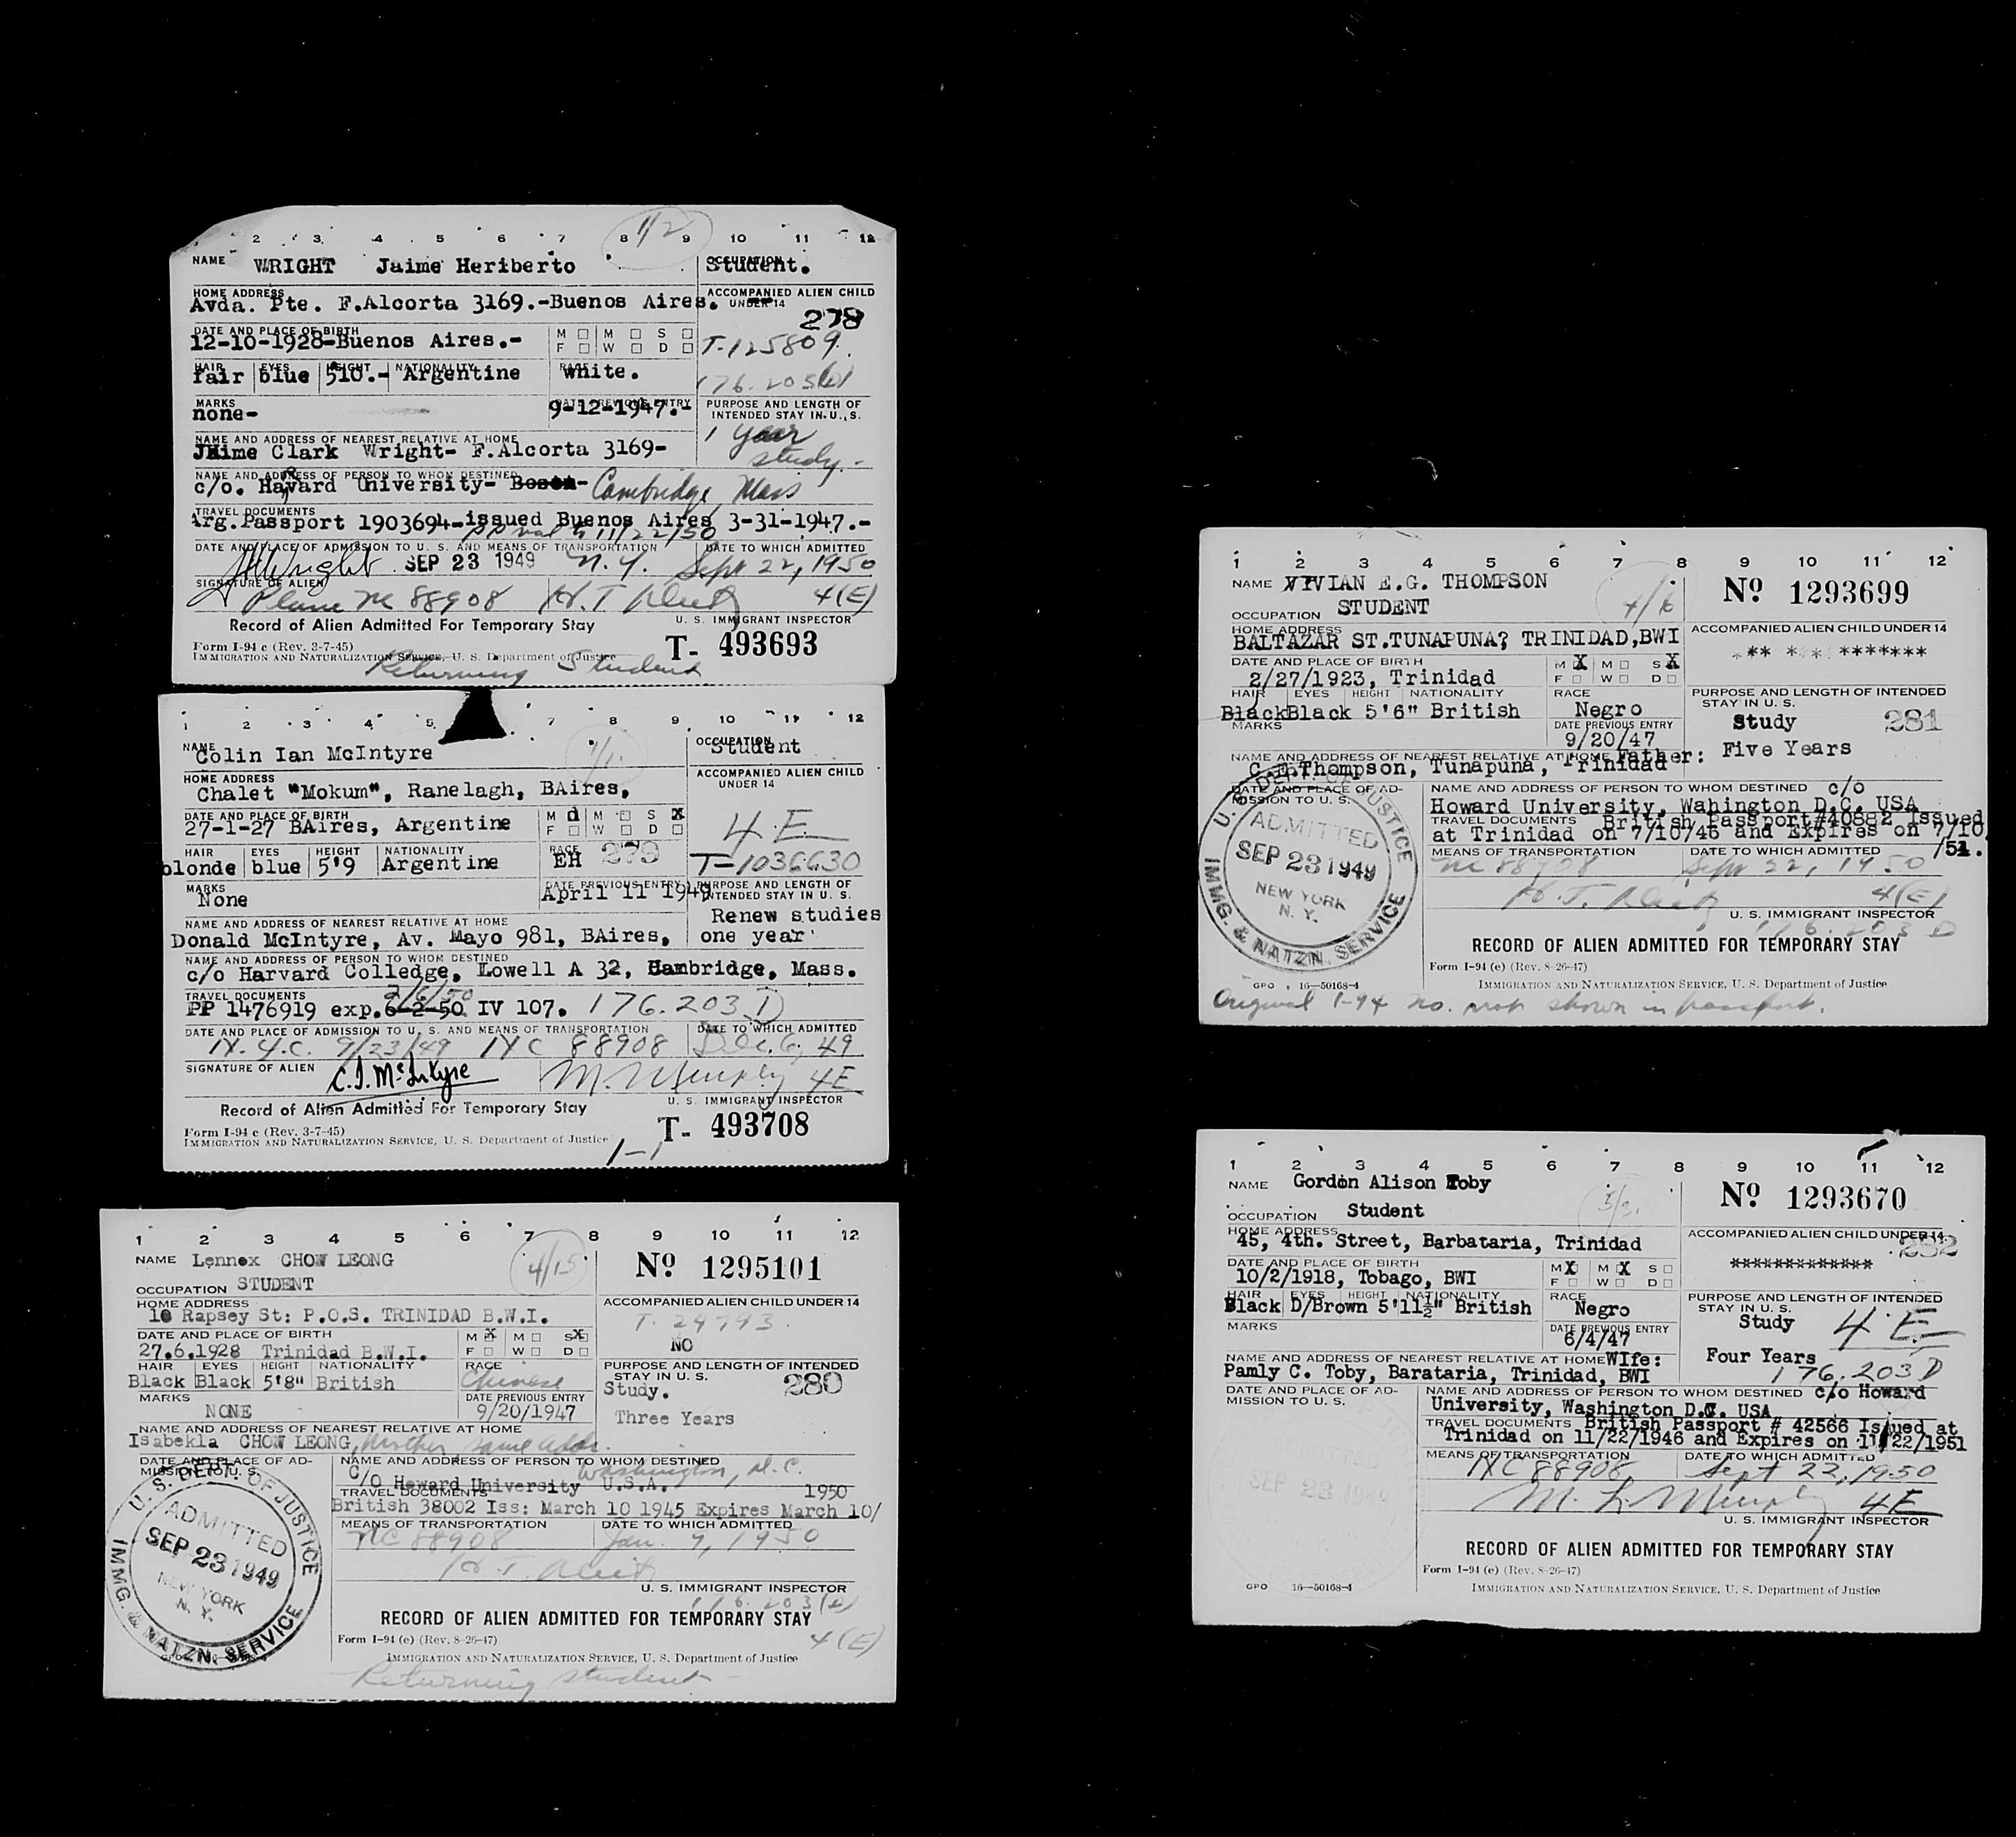 1/2
2 3 4 5 6 7 8 9 10 11 12
NAME WRIGHT Jaime Heriberto
OCCUPATION Student.
HOME ADDRESS
Avda. Pte. F.Alcorta 3169.-Buenos Aires.
ACCOMPANIED ALIEN CHILD UNDER 14
278
DATE AND PLACE OF BIRTH
12-10-1928-Buenos Aires.-
M M S
F W D
T-125809.
HAIR fair EYES blue HEIGHT 510.- NATIONALITY Argentine RACE white.
176.203(D)
MARKS none-
DATE PREVIOUS ENTRY 9-12-1947.-
PURPOSE AND LENGTH OF INTENDED STAY IN U. S.
1 year
study.-
NAME AND ADDRESS OF NEAREST RELATIVE AT HOME
Jaime Clark Wright- F.Alcorta 3169-
NAME AND ADDRESS OF PERSON TO WHOM DESTINED
c/o. Harvard University- Boston- Cambridge, Mass
TRAVEL DOCUMENTS
Arg.Passport 1903694-issued Buenos Aires 3-31-1947.-
PP val to 11/22/50
DATE AND PLACE OF ADMISSION TO U. S. AND MEANS OF TRANSPORTATION
DATE TO WHICH ADMITTED
JHWright SEP 23 1949 N.Y. Sept 22, 1950
SIGNATURE OF ALIEN
Plane NC 88908 H.T. 4(E)
Record of Alien Admitted For Temporary Stay
U. S. IMMIGRANT INSPECTOR
Form I-94 c (Rev. 3-7-45)
IMMIGRATION AND NATURALIZATION SERVICE, U. S. Department of Justice
T- 493693
Returning Student
1 2 3 4 5 7 8 9 10 11 12
1/1.
NAME Colin Ian McIntyre
OCCUPATION Student
HOME ADDRESS
Chalet "Mokum", Ranelagh, BAires,
ACCOMPANIED ALIEN CHILD UNDER 14
DATE AND PLACE OF BIRTH
27-1-27 BAires, Argentine
M d M S X
F W D
4.E
HAIR blonde EYES blue HEIGHT 5'9 NATIONALITY Argentine RACE EH 279
T-1036630
MARKS None
DATE PREVIOUS ENTRY April 11 1949
PURPOSE AND LENGTH OF INTENDED STAY IN U. S.
Renew studies
one year
NAME AND ADDRESS OF NEAREST RELATIVE AT HOME
Donald McIntyre, Av. Mayo 981, BAires,
NAME AND ADDRESS OF PERSON TO WHOM DESTINED
c/o Harvard Colledge, Lowell A 32, Cambridge, Mass.
2/6/50
TRAVEL DOCUMENTS
PP 1476919 exp.6-2-50 IV 107. 176.203 D
DATE AND PLACE OF ADMISSION TO U. S. AND MEANS OF TRANSPORTATION
DATE TO WHICH ADMITTED
N.Y.C. 9/23/49 NC 88908 Dec. 6, 49
SIGNATURE OF ALIEN C.I. McIntyre M. L. Murphy 4E
Record of Alien Admitted For Temporary Stay
U. S. IMMIGRANT INSPECTOR
Form I-94 c (Rev. 3-7-45)
IMMIGRATION AND NATURALIZATION SERVICE, U. S. Department of Justice
T- 493708
1-1
1 2 3 4 5 6 7 8 9 10 11 12
NAME Lennox CHOW LEONG
4/15
Nº 1295101
OCCUPATION STUDENT
HOME ADDRESS
10 Rapsey St: P.O.S. TRINIDAD B.W.I.
ACCOMPANIED ALIEN CHILD UNDER 14
T-24793.
NO
DATE AND PLACE OF BIRTH
27.6.1928 Trinidad B.W.I.
M X M S X
F W D
HAIR EYES HEIGHT NATIONALITY RACE
Black Black 5'8" British Chinese
PURPOSE AND LENGTH OF INTENDED STAY IN U. S.
Study. 280
Three Years
MARKS NONE
DATE PREVIOUS ENTRY
9/20/1947
NAME AND ADDRESS OF NEAREST RELATIVE AT HOME
Isabekla CHOW LEONG, Mother, same addr.
DATE AND PLACE OF ADMISSION TO U. S.
NAME AND ADDRESS OF PERSON TO WHOM DESTINED
C/O Howard University U.S.A. Washington, D.C.
TRAVEL DOCUMENTS 1950
British 38002 Iss: March 10 1945 Expires March 10/
MEANS OF TRANSPORTATION DATE TO WHICH ADMITTED
NC 88908 Jan. 9, 1950
H.T.
U. S. IMMIGRANT INSPECTOR
176.203(D)
U. S. DEPT. OF JUSTICE
ADMITTED
SEP 23 1949
NEW YORK
N. Y.
IMMG. & NATZN. SERVICE
RECORD OF ALIEN ADMITTED FOR TEMPORARY STAY
Form I-94 (e) (Rev. 8-26-47) 4(E)
IMMIGRATION AND NATURALIZATION SERVICE, U. S. Department of Justice
Returning student
1 2 3 4 5 6 7 8 9 10 11 12
NAME VIVIAN E.G. THOMPSON
4/16
Nº 1293699
OCCUPATION STUDENT
HOME ADDRESS
BALTAZAR ST.TUNAPUNA? TRINIDAD,BWI
ACCOMPANIED ALIEN CHILD UNDER 14
DATE AND PLACE OF BIRTH
2/27/1923, Trinidad
M X M S X
F W D
HAIR EYES HEIGHT NATIONALITY RACE
Black Black 5'6" British Negro
PURPOSE AND LENGTH OF INTENDED STAY IN U. S.
Study 281
Five Years
MARKS
DATE PREVIOUS ENTRY
9/20/47
NAME AND ADDRESS OF NEAREST RELATIVE AT HOME Father:
C.E.Thompson, Tunapuna, Trinidad
DATE AND PLACE OF ADMISSION TO U. S.
NAME AND ADDRESS OF PERSON TO WHOM DESTINED c/o
Howard University, Wahington D.C. USA
TRAVEL DOCUMENTS British Passport#40882 Issued
at Trinidad on 7/10/46 and Expires on 7/10
/51.
MEANS OF TRANSPORTATION DATE TO WHICH ADMITTED
NC 88908 Sept 22, 1950
H.T. 4(E)
U. S. IMMIGRANT INSPECTOR
176.203 D
U. S. DEPT. OF JUSTICE
ADMITTED
SEP 23 1949
NEW YORK
N. Y.
IMMG. & NATZN. SERVICE
RECORD OF ALIEN ADMITTED FOR TEMPORARY STAY
Form I-94 (e) (Rev. 8-26-47)
GPO 16—50168-4
IMMIGRATION AND NATURALIZATION SERVICE, U. S. Department of Justice
Original I-94 no. not shown in passport.
1 2 3 4 5 6 7 8 9 10 11 12
NAME Gordon Alison Toby
5/3.
Nº 1293670
OCCUPATION Student
HOME ADDRESS
45, 4th. Street, Barbataria, Trinidad
ACCOMPANIED ALIEN CHILD UNDER 14
282
*************
DATE AND PLACE OF BIRTH
10/2/1918, Tobago, BWI
M X M X S
F W D
HAIR EYES HEIGHT NATIONALITY RACE
Black D/Brown 5'11½" British Negro
PURPOSE AND LENGTH OF INTENDED STAY IN U. S.
Study 4.E
Four Years
176.203 D
MARKS
DATE PREVIOUS ENTRY
6/4/47
NAME AND ADDRESS OF NEAREST RELATIVE AT HOME WIfe:
Pamly C. Toby, Barataria, Trinidad, BWI
DATE AND PLACE OF ADMISSION TO U. S.
NAME AND ADDRESS OF PERSON TO WHOM DESTINED c/o Howard
University, Washington D.C. USA
TRAVEL DOCUMENTS British Passport # 42566 Issued at
Trinidad on 11/22/1946 and Expires on 11/22/1951
MEANS OF TRANSPORTATION DATE TO WHICH ADMITTED
NC 88908 Sept 22, 1950
M. L. Murphy 4E
U. S. IMMIGRANT INSPECTOR
ADMITTED
SEP 23 1949
RECORD OF ALIEN ADMITTED FOR TEMPORARY STAY
Form I-94 (e) (Rev. 8-26-47)
GPO 16—50168-4
IMMIGRATION AND NATURALIZATION SERVICE, U. S. Department of Justice